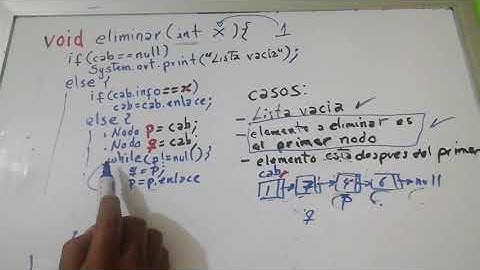 void eliminar(int x){ 1
if(cab==null)
System.out.print("Lista vacia");
else {
if(cab.info==x)
cab=cab.enlace;
else {
Nodo p=cab;
Nodo q=cab;
while(p!=null){
q=p;
p=p.enlace
casos:
- Lista vacia
- elemento a eliminar es
el primer nodo
- elemento está despues del primer
cab
1 7 4 6 null
q p